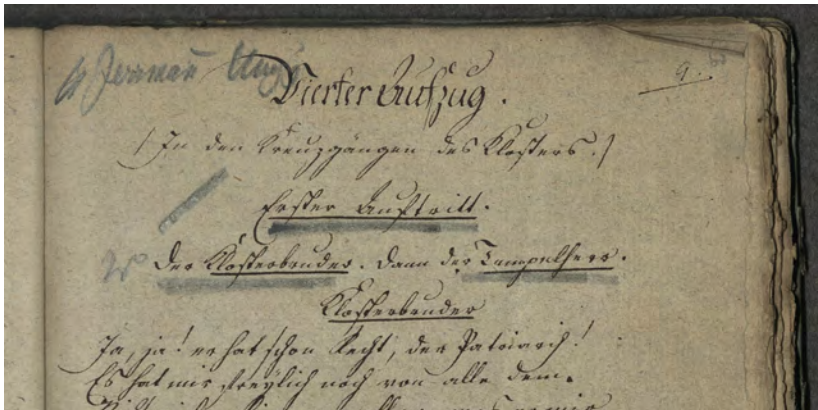 9.
Vierter Aufzug.
(In den Kreuzgängen des Klosters.)
Erster Auftritt.
Der Klosterbruder. Dann der Tempelherr.
Klosterbruder
Ja, ja! er hat schon Recht, der Patriarch!
Es hat mir freylich noch von alle dem.